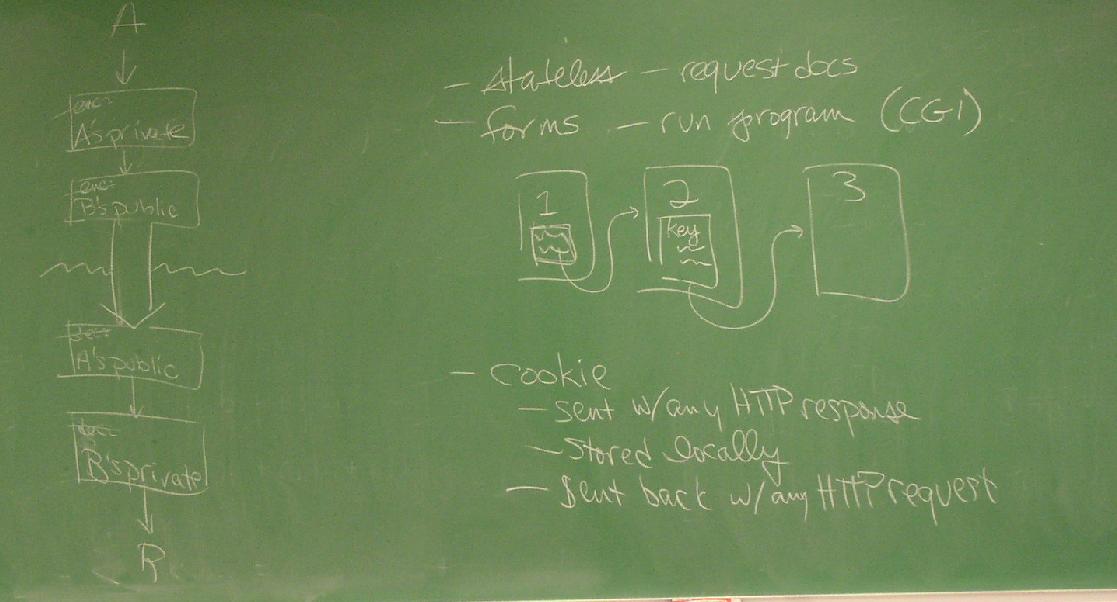 A
enc
A's private
enc
B's public
A's public
B's private
R
- stateless - request docs
- forms - run program (CGI)
1
2
key
3
- cookie
- sent w/any HTTP response
- stored locally
- sent back w/any HTTP request